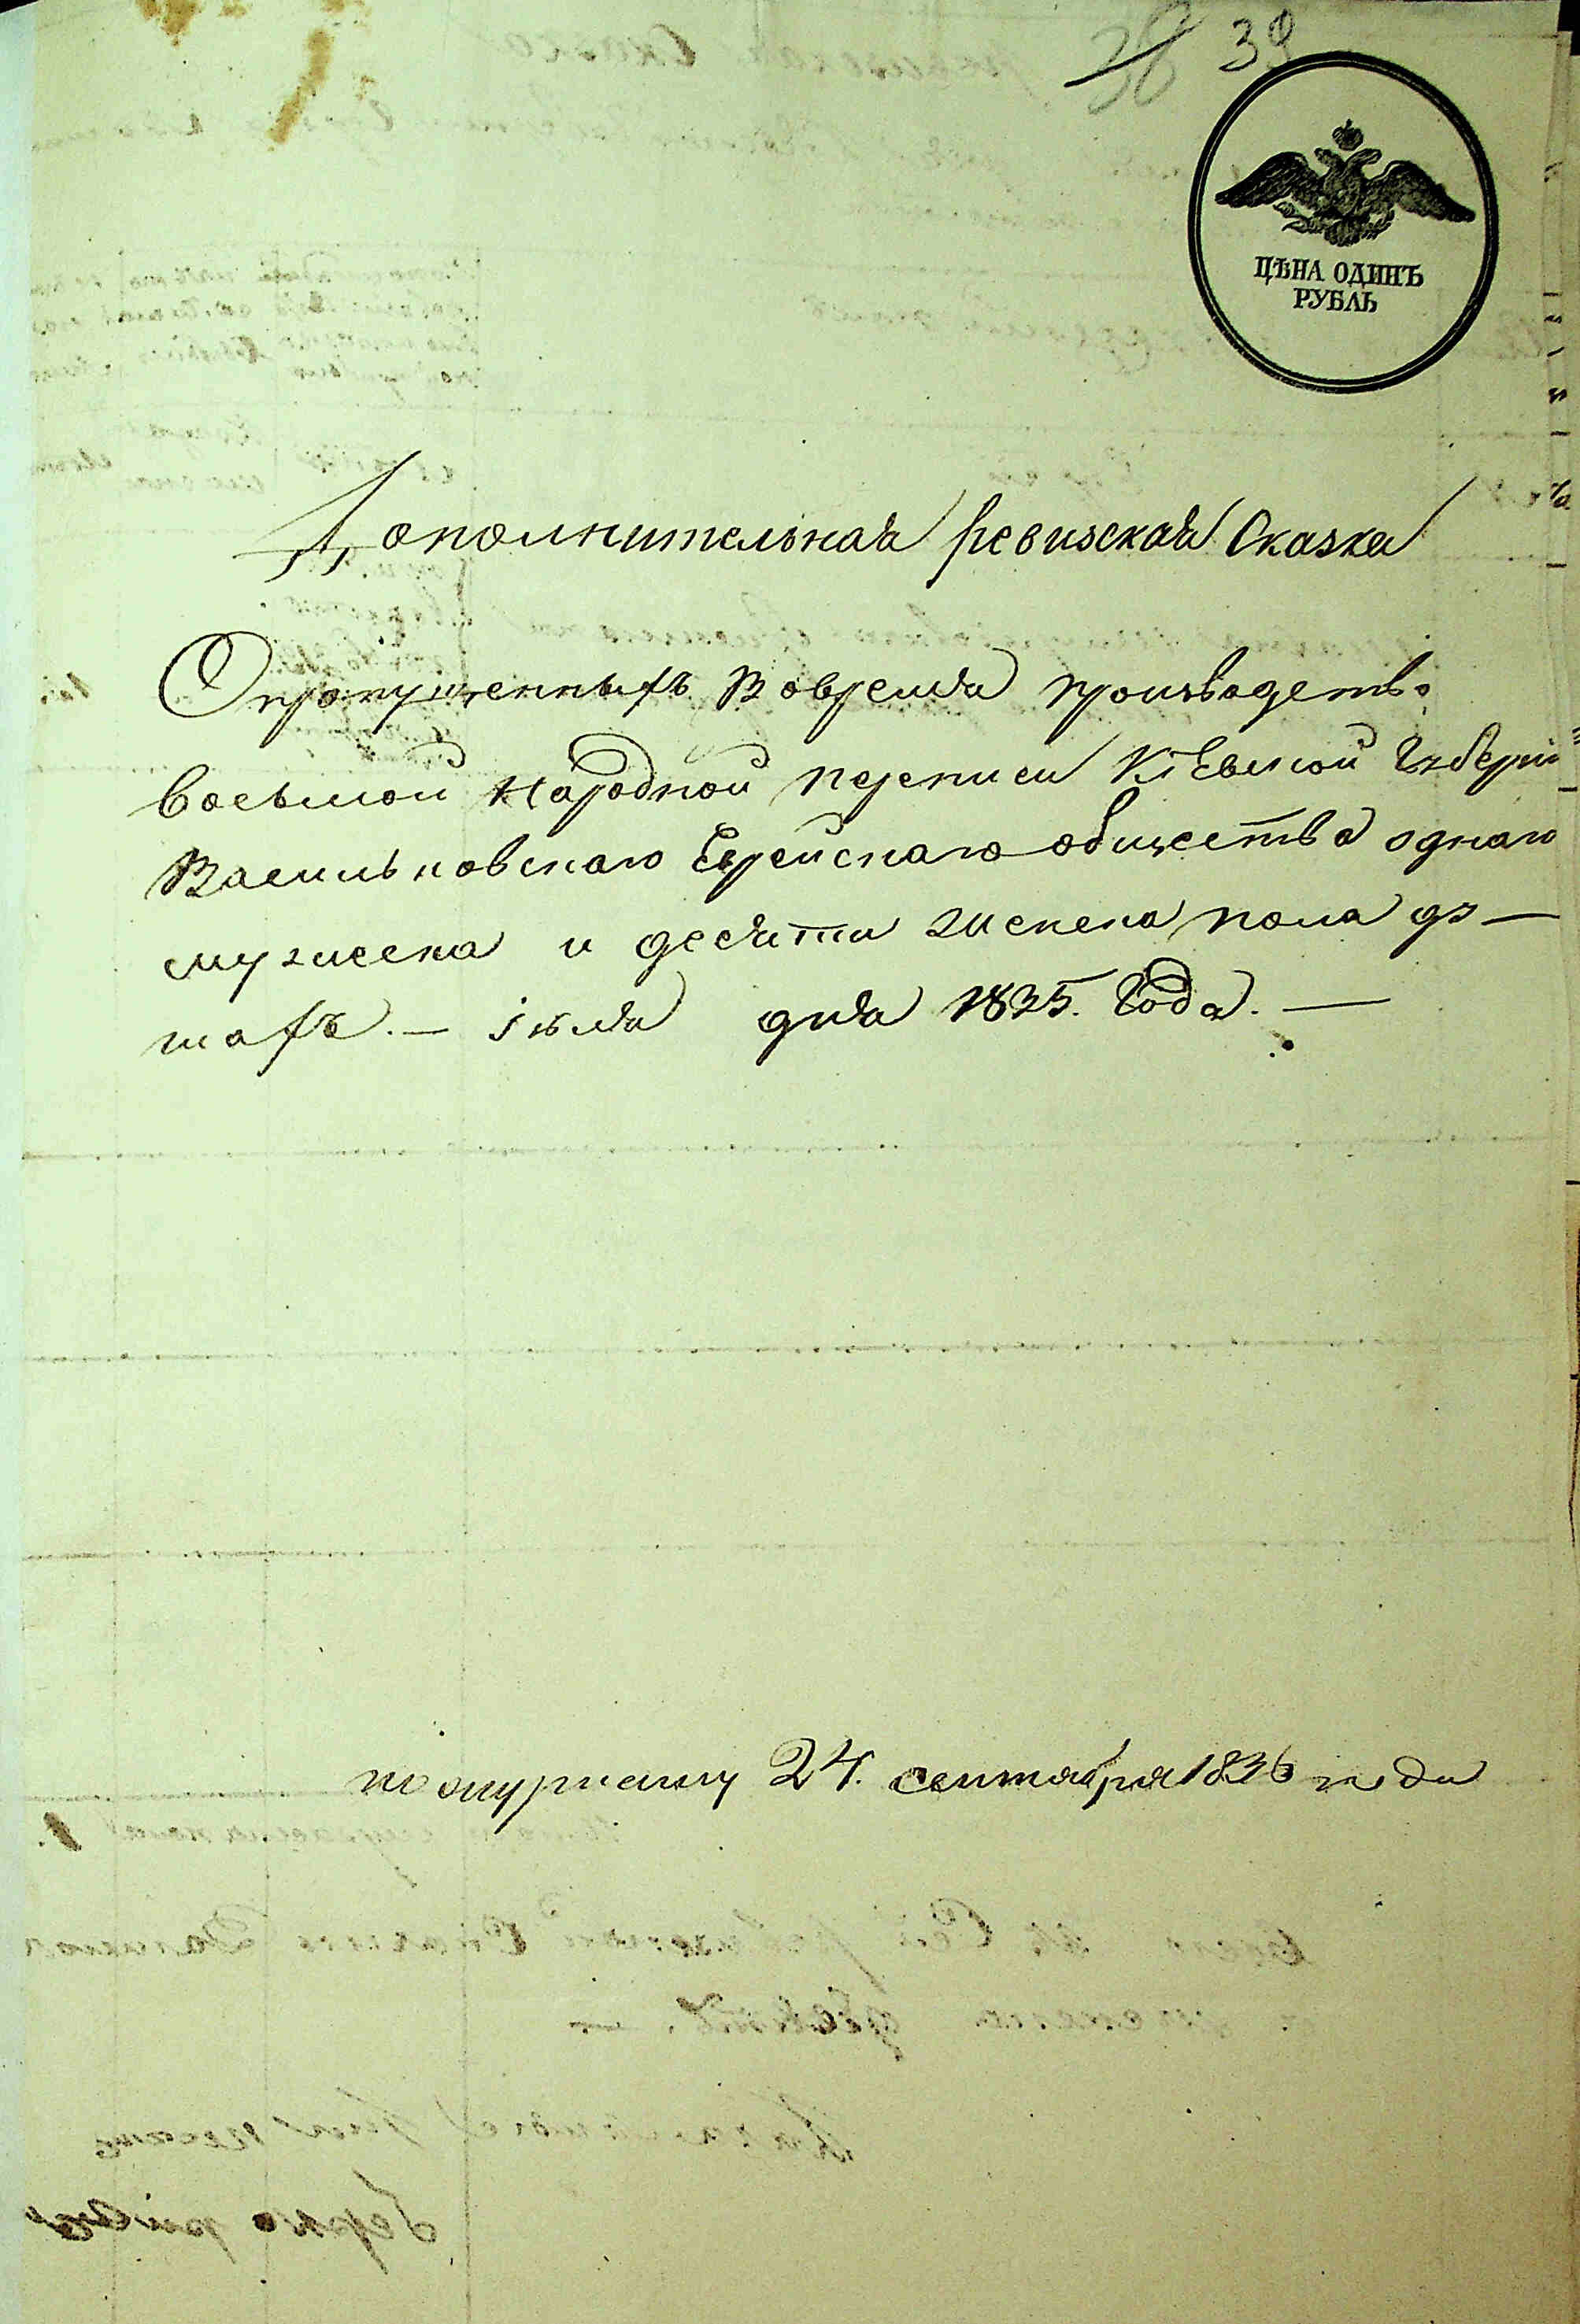 38 39
ЦѢНА ОДИНЪ
РУБЛЬ
Дополнительная ревизская Сказка
О пропущенныхъ вовремя произъводство
восьмой народной переписи Кіевской Губерніи
Васильковскаго Еврейскаго общества одного
мужеска и десяти женска пола ду—
шахъ. — Іюля дня 1835. Года. —
по журналу 24. сентября 1836 года